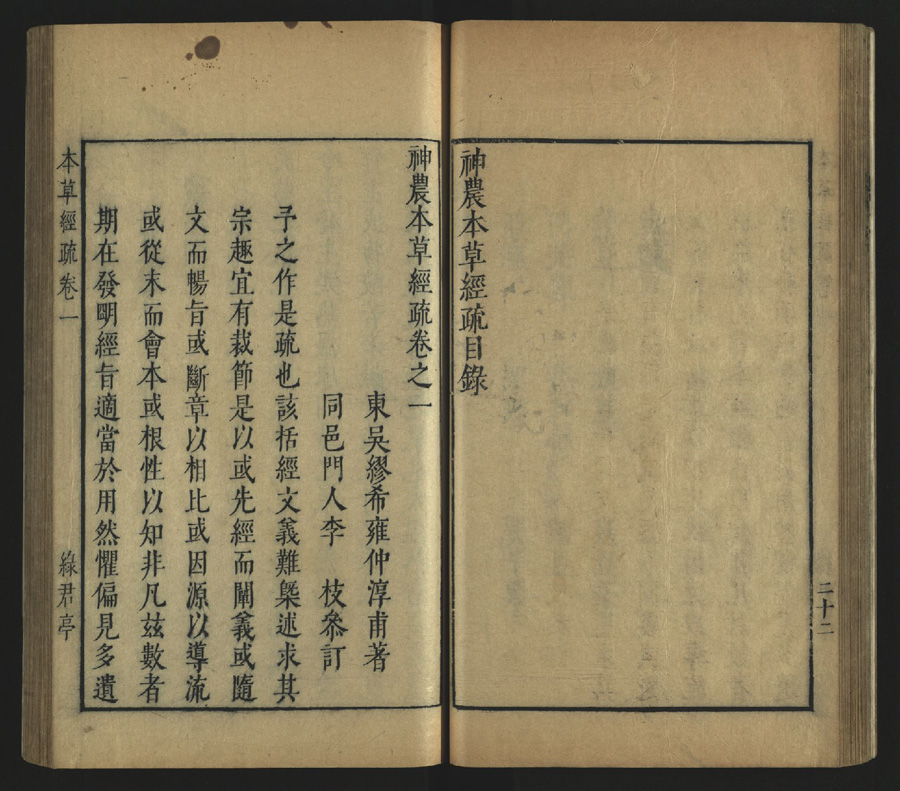 神農本草經疏目錄
二十二
神農本草經疏卷之一
東吳繆希雍仲淳甫著
同邑門人李 枝叅訂
予之作是疏也該括經文義難槩述求其
宗趣宜有裁節是以或先經而闡義或隨
文而暢旨或斷章以相比或因源以導流
或從末而會本或根性以知非凡玆數者
期在發明經旨適當於用然懼偏見多遺
本草經疏卷一
綠君亭